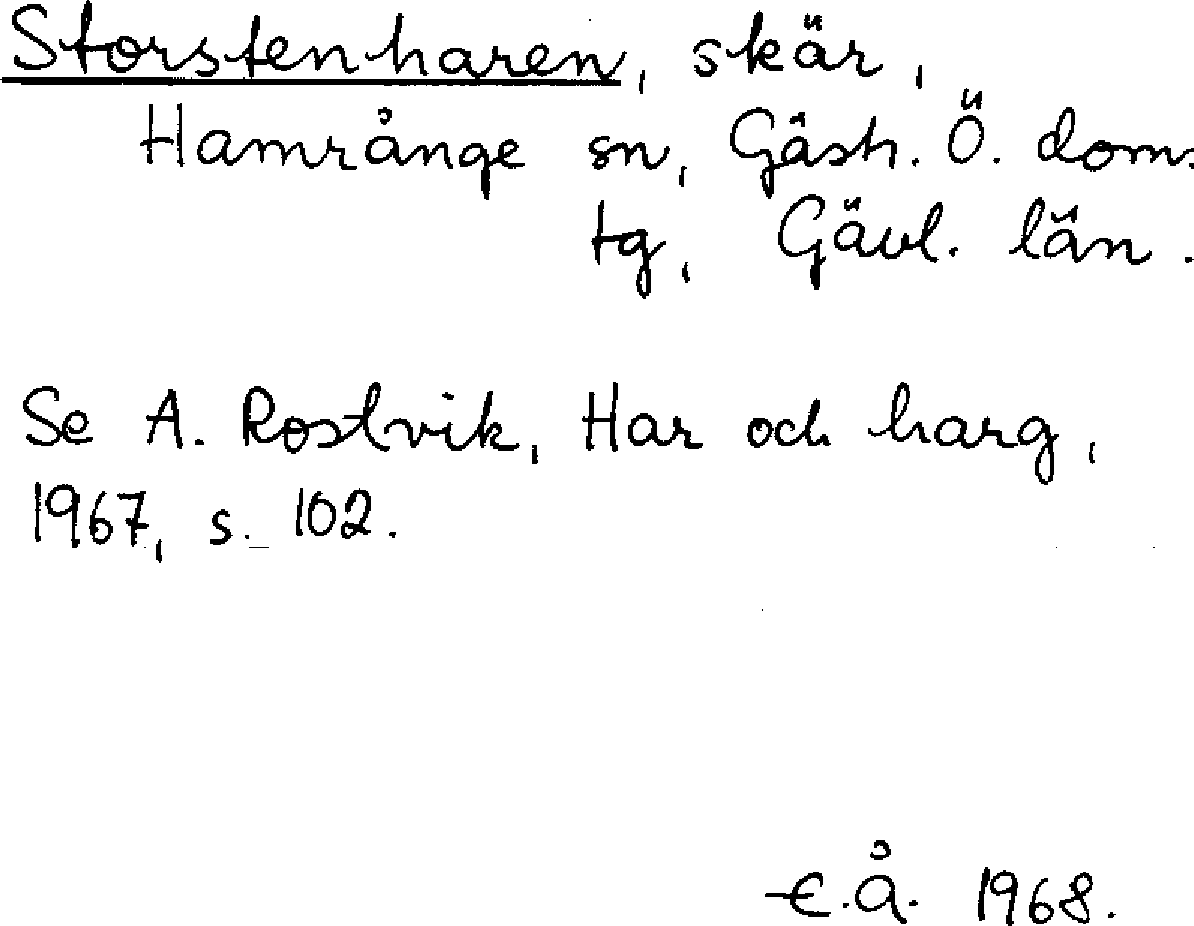 Storstenharen, skär,
Hamrånge sn, Gästr. Ö. doms.
tg, Gävl. län.
Se A. Rostvik, Har och harg,
1967, s. 102.
E.Å. 1968.